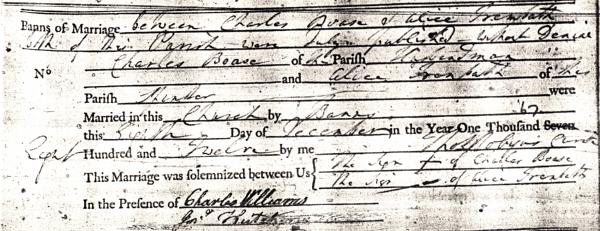 Banns of Marriage between Charles Boase & Alice Trembath
both of this Parish were duly published without Denial
No Charles Boase of the Parish Husbandman
and Alice Trembath of this
Parish were
Married in this Church by Banns by
this Eighth Day of December in the Year One Thousand Seven
Eight Hundred and Twelve by me Curate
This Marriage was solemnized between Us { The Sign + of Charles Boase
The Sign of Alice Trembath
In the Presence of Charles Williams